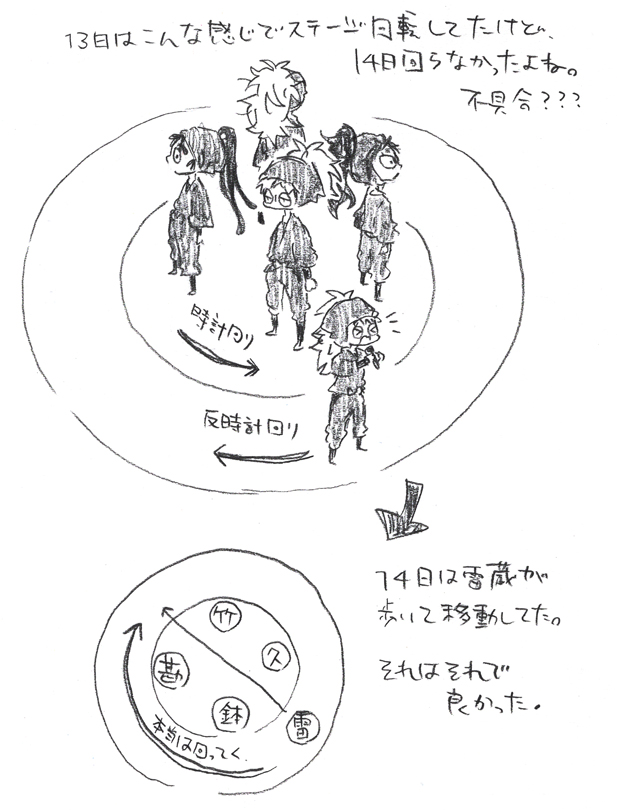 13日はこんな感じでステージ回転してたけど、
14日回らなかったよね。
不具合???
時計回り
反時計回り
14日は雷蔵が
歩いて移動してた。
それはそれで
良かった。
竹
久
勘
鉢
雷
本当は回ってく。